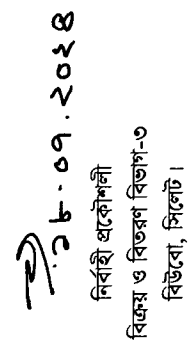 ১৮.০৭.২০২৪
নির্বাহী প্রকৌশলী
বিক্রয় ও বিতরণ বিভাগ-৩
বিউবো, সিলেট।